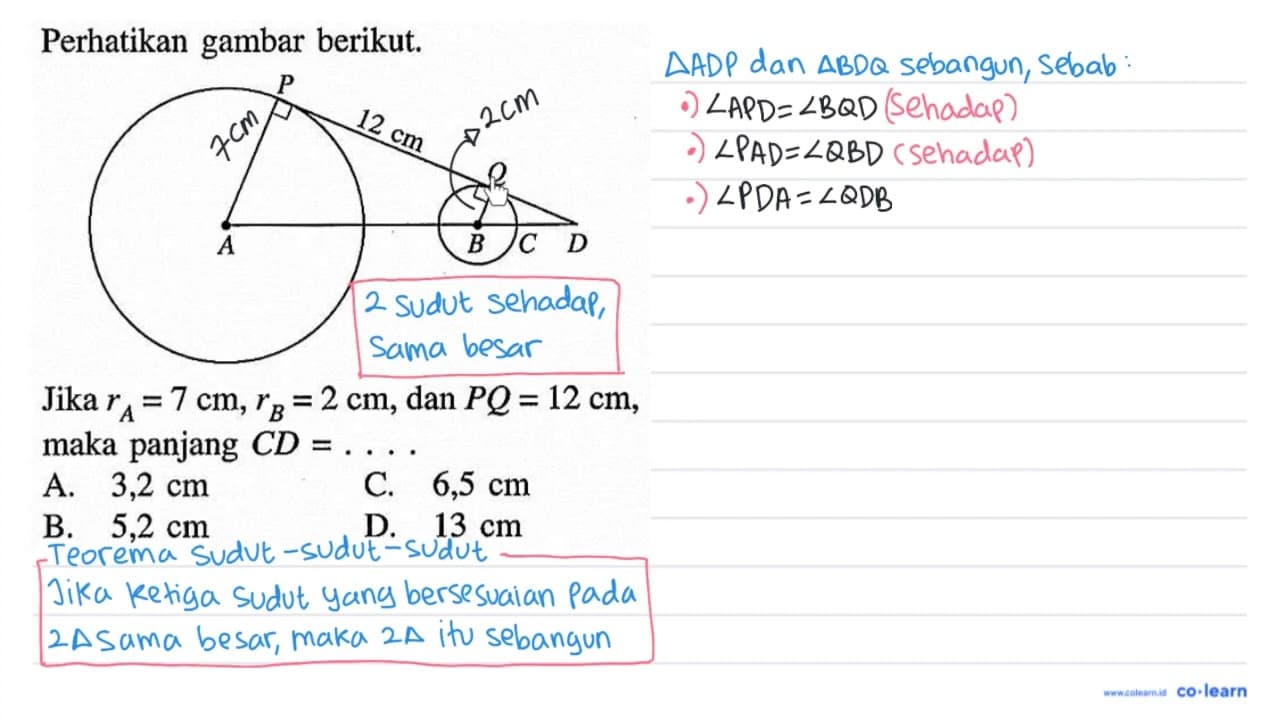 Perhatikan gambar berikut.
P
7cm
12 cm
2cm
Q
A
B
C
D
2 sudut sehadap,
sama besar
Jika rA = 7 cm, rB = 2 cm, dan PQ = 12 cm,
maka panjang CD = . . . .
A. 3,2 cm
C. 6,5 cm
B. 5,2 cm
D. 13 cm
Teorema sudut-sudut-sudut
Jika ketiga sudut yang bersesuaian pada
2Δ sama besar, maka 2Δ itu sebangun
ΔADP dan ΔBDQ sebangun, sebab :
•) ∠APD = ∠BQD (sehadap)
•) ∠PAD = ∠QBD (sehadap)
•) ∠PDA = ∠QDB
www.colearn.id co·learn